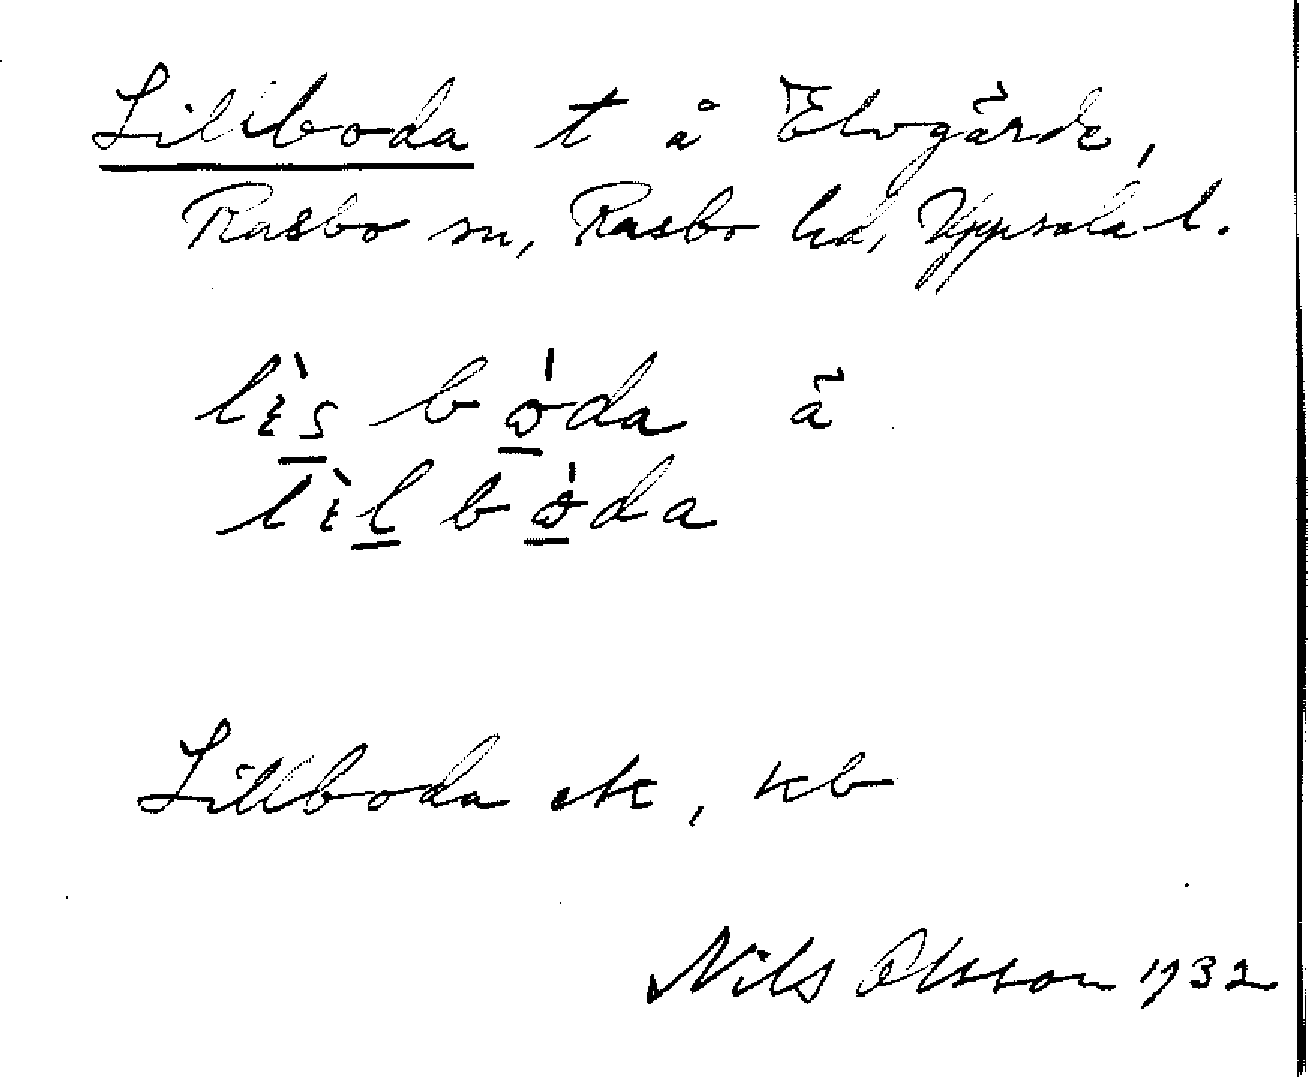 Lillboda t å Elvgärde,
Rasbo sn, Rasbo hd, Uppsala l.
boda å
boda
Lillboda ek, kb
Nils Olsson 1932